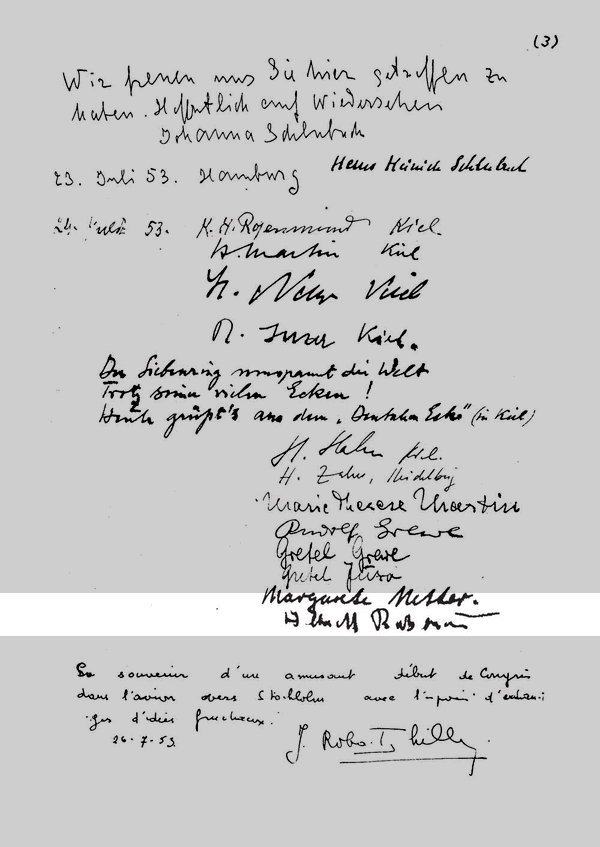 (3)
Wir freuen uns Sie hier getroffen zu
haben. Hoffentlich auf Wiedersehen
Johanna Schlubach
Hans Heinrich Schlubach
23. Juli 53. Hamburg
24. Juli 53. K. H. Kiel.
H. Martin Kiel
H. Kiel
R. Kiel.
Der Siebenring umspannt die Welt
Trotz seiner vielen Ecken!
Heute grüßt's aus dem "Deutschen Eck" (in Kiel)
H. Hahn Kiel.
H. Zahn, Heidelberg
Marie Therese Martin
Rudolf Grewe
Gretel Grewe
Gretel
Margarete
En souvenir d'un amusant début de Congrès
dans l'avion vers Stockholm avec l'espoir d'échan-
ges d'idées
26.7.53
J.